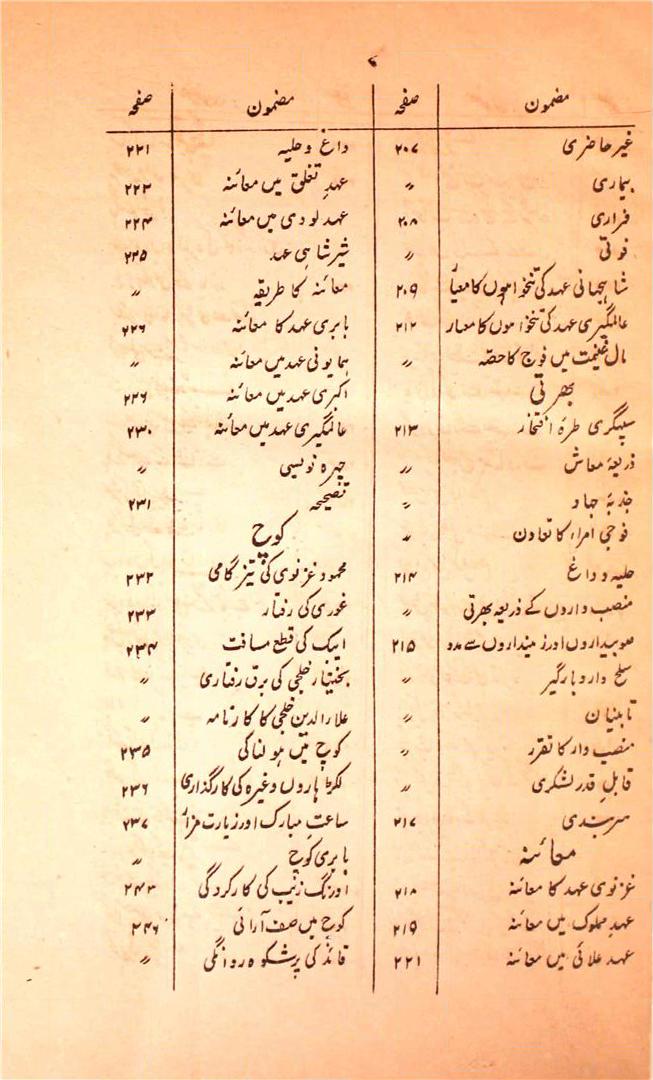 ۷
مضمون صفحہ
غیر حاضری ۲۰۷
بیماری 〃
فراری ۲۰۸
فوتی 〃
شاہجہانی عہد کی تنخواہوں کا معیار ۲۰۹
عالمگیری عہد کی تنخواہوں کا معیار ۲۱۲
مال غنیمت میں فوج کا حصہ 〃
بھرتی
سپہگری طرۂ افتخار ۲۱۳
ذریعۂ معاش 〃
جذبۂ جہاد 〃
فوجی امراء کا تعاون 〃
حلیہ و داغ ۲۱۴
منصب داروں کے ذریعہ بھرتی 〃
صوبیداروں اور زمینداروں سے مدد ۲۱۵
سلح دار و بارگیر 〃
تابینان 〃
منصب دار کا تقرر 〃
قابلِ قدر لشکری 〃
سربندی ۲۱۷
معائنہ
غزنوی عہد کا معائنہ ۲۱۸
عہدِ مملوک میں معائنہ ۲۱۹
عہد علائی میں معائنہ ۲۲۱
مضمون صفحہ
داغ و حلیہ ۲۲۱
عہدِ تغلق میں معائنہ ۲۲۳
عہد لودی میں معائنہ ۲۲۴
شیر شاہی عہد ۲۲۵
معائنہ کا طریقہ 〃
بابری عہد کا معائنہ ۲۲۶
ہمایونی عہد میں معائنہ 〃
اکبری عہد میں معائنہ ۲۲۶
عالمگیری عہد میں معائنہ ۲۳۰
چہرہ نویسی 〃
تصحیحہ ۲۳۱
کوچ
محمود غزنوی کی تیز گامی ۲۳۲
غوری کی رفتار ۲۳۳
ایبک کی قطع مسافت ۲۳۴
بختیار خلجی کی برق رفتاری 〃
علاء الدین خلجی کا کارنامہ 〃
کوچ میں ہولناکی ۲۳۵
لکڑہاروں وغیرہ کی کارگذاری ۲۳۶
ساعتِ مبارک اور زیارت مزار ۲۳۷
بابری کوچ 〃
اورنگ زیب کی کارکردگی ۲۴۳
کوچ میں صف آرائی ۲۴۶
قائد کی پرشکوہ روانگی 〃